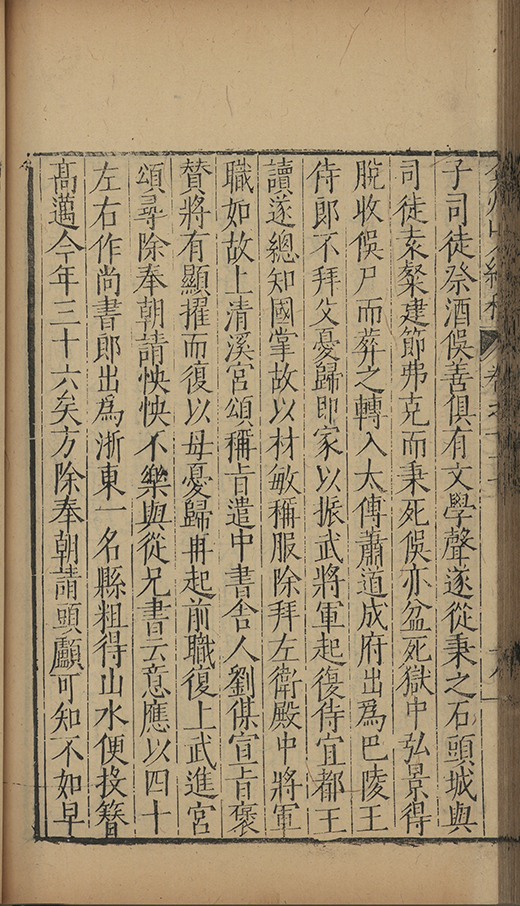 子司徒祭酒俁善俱有文學聲遂從秉之石頭城與
司徒袁粲建節弗克而秉死俁亦盆死獄中弘景得
脫收俁尸而葬之轉入太傅蕭道成府出爲巴陵王
侍郎不拜父憂歸即家以振武將軍起復侍宜都王
讀遂總知國掌故以材敏稱服除拜左衛殿中將軍
職如故上清溪宮頌稱旨遣中書舍人劉宣旨褒
贊將有顯擢而復以母憂歸再起前職復上武進宮
頌尋除奉朝請怏怏不樂與從兄書云意應以四十
左右作尚書郎出為浙東一名縣粗得山水便投簪
高邁今年三十六矣方除奉朝請頭顱可知不如早